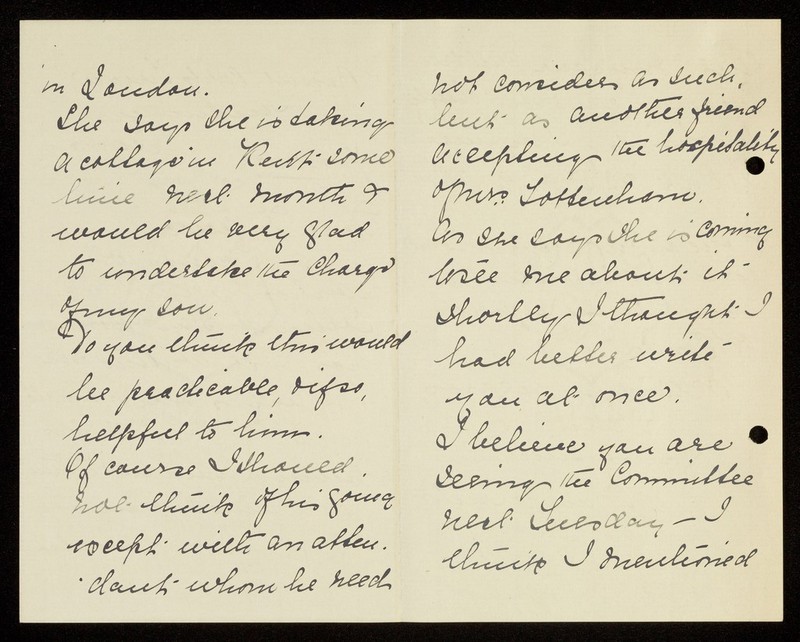 in London.
She says she is taking
a cottage in Kent some
time next month &
would be very glad
to undertake the charge
of my son.
Do you think this would
be practicable, & if so,
helpful to him.
Of course I should
not think of his going
except with an atten-
dant whom he need
not consider as such,
but as another friend
accepting the hospitality
of Mrs. Tottenham.
As she says she is coming
to see me about it
shortly I thought I
had better write
you at once.
I believe you are
seeing the Committee
next Tuesday – I
think I mentioned